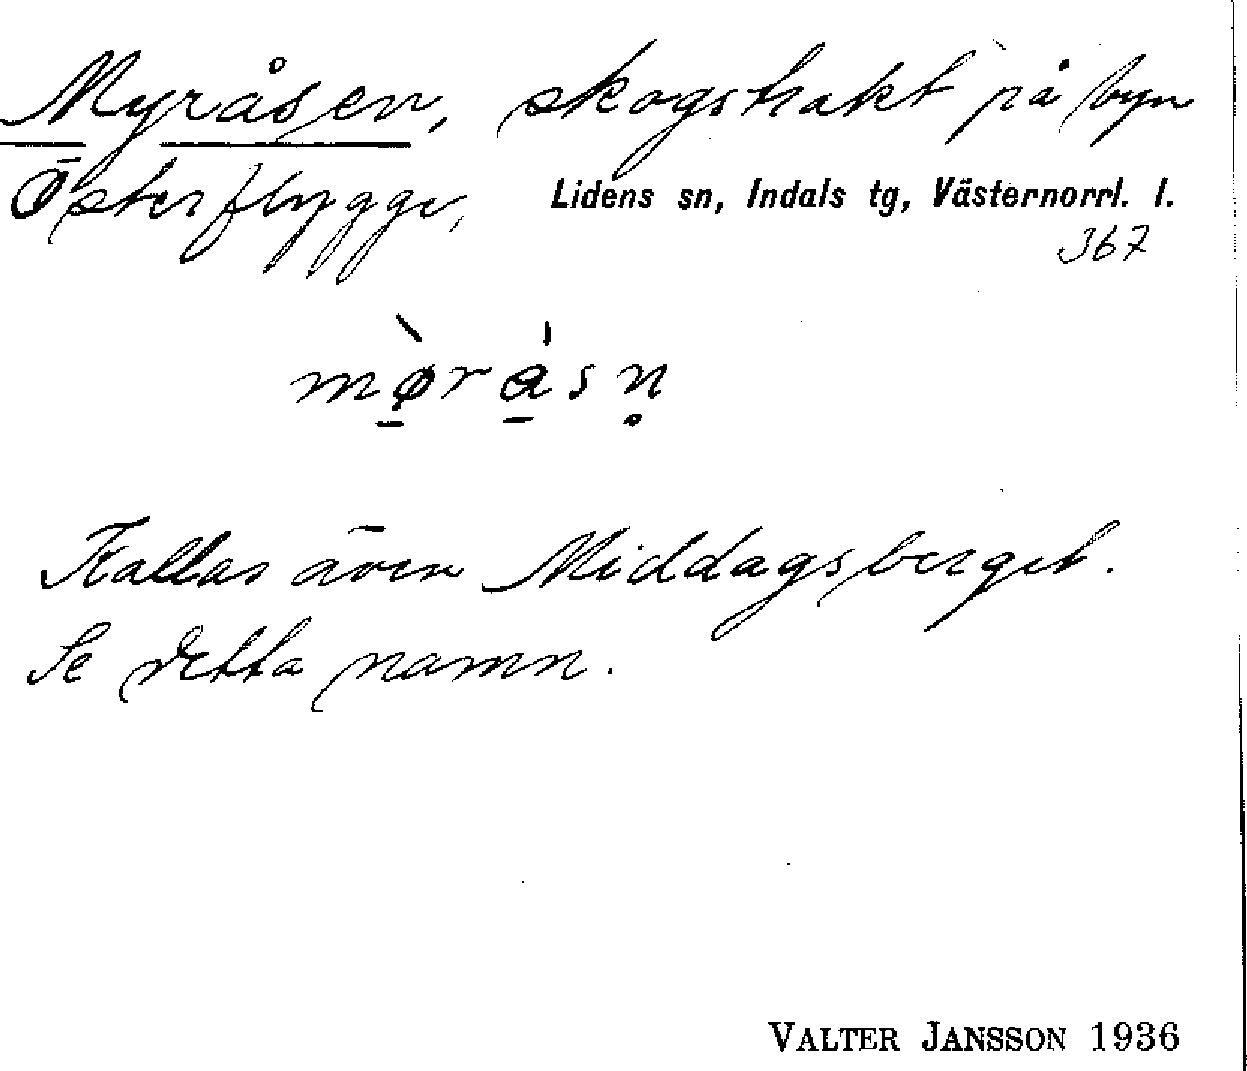 Myråsen, skogstrakt på byn
Österflygge, Lidens sn, Indals tg, Västernorrl. l.
367
mø̱̀ra̱̍sn̥
Kallas även Middagsberget.
Se detta namn.
VALTER JANSSON 1936